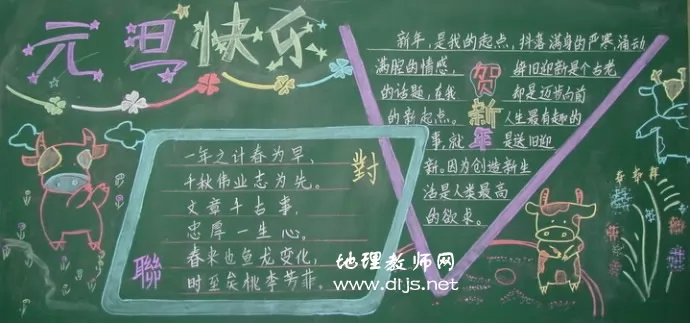 元旦快乐
新年,是我的起点,抖落满身的严寒,涌动
满腔的情感,
辞旧迎新是个古老
的话题,在我
都是迈步向前
的新起点。
人生最有趣的
事,就
是送旧迎
新。因为创造新生
活是人类最高
的欲求。
贺新年
對聯
一年之计春为早,
千秋伟业志为先。
文章千古事,
忠厚一生心。
春来也鱼龙变化,
时至矣桃李芳菲。
地理教师网
www.dljs.net